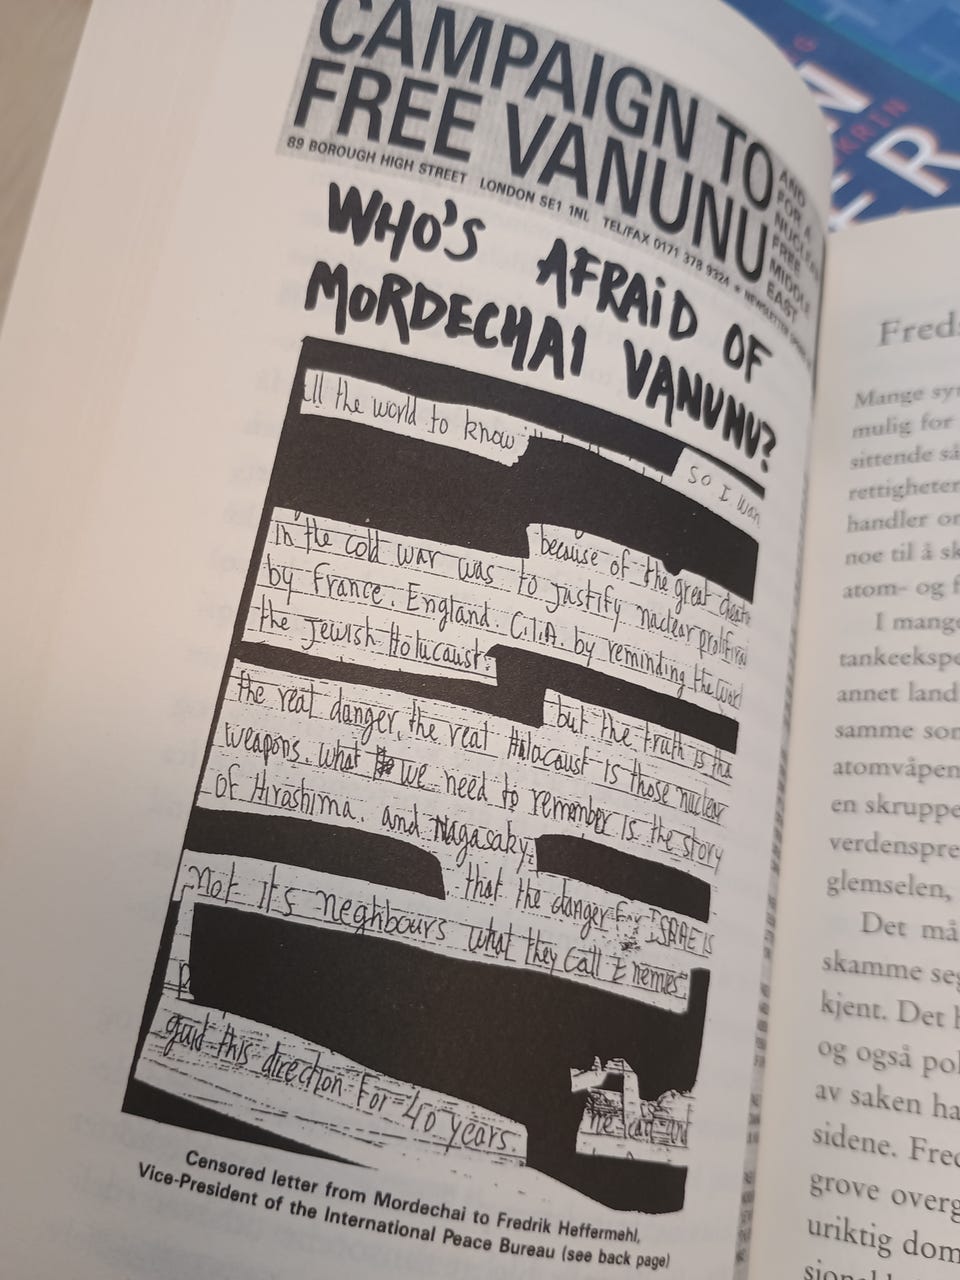 CAMPAIGN TO
FREE VANUNU
AND
FOR A
NUCLEAR
FREE
MIDDLE
EAST
89 BOROUGH HIGH STREET LONDON SE1 1NL TEL/FAX 0171 378 9324 • NEWSLETTER
WHO'S AFRAID OF
MORDECHAI VANUNU?
ll the world to know
so I wan
because of the great
in the cold war was to justify nuclear
by France. England. C.I.A. by reminding the worl
the Jewish Holucaust.
but the truth is the
the real danger, the real Holocaust is those nuclear
weapons. what we need to remember is the story
of Hiroshima. and Nagasaky.
that the danger For ISRAE is
Not it's neghbours what they call Enemies.
guid this direction For 40 years.
Censored letter from Mordechai to Fredrik Heffermehl,
Vice-President of the International Peace Bureau (see back page)
Freds
Mange syn
mulig for
sittende så
rettigheter
handler or
noe til å sk
atom- og f
I mange
tankeekspe
annet land
samme som
atomvåpen
en skruppe
verdenspre
glemselen,
Det må
skamme seg
kjent. Det h
og også pol
av saken ha
sidene. Fred
grove overg
uriktig dom